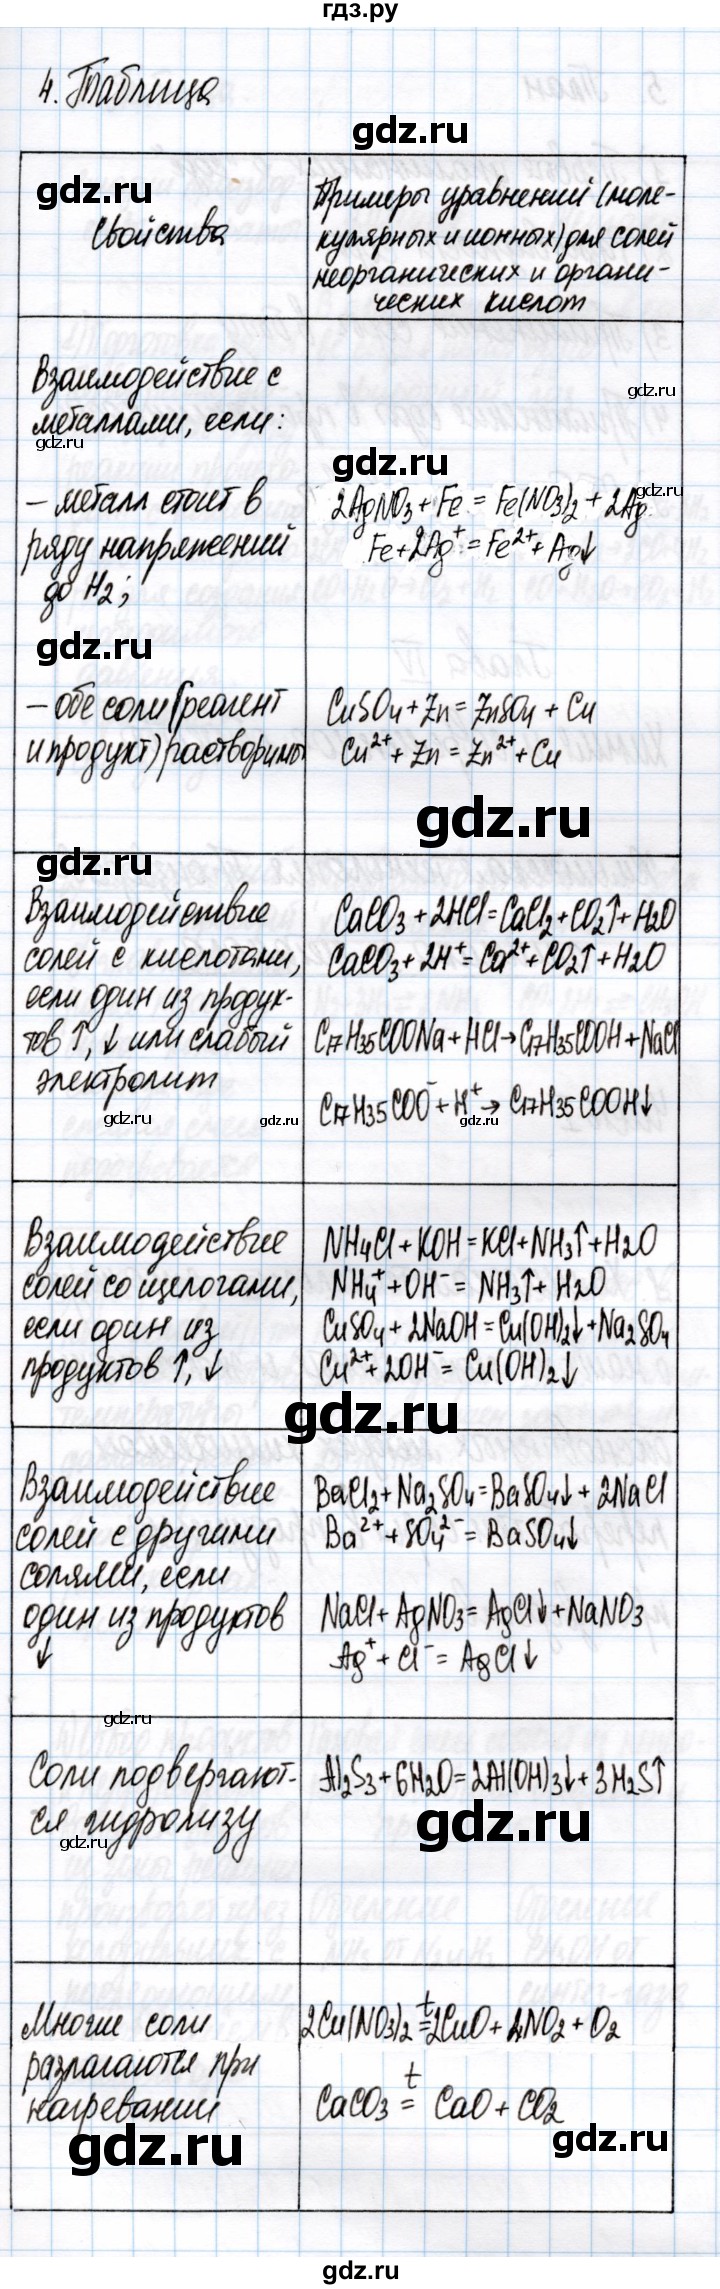 гдз.ру
4. Таблица
gdz.ru
gdz.ru
Свойства
Примеры уравнений (моле-
кулярных и ионных) для солей
неорганических и органи-
ческих кислот
Взаимодействие с
металлами, если:
gdz.ru
gdz.ru
gdz.ru
– металл стоит в
ряду напряжений
до H2;
2AgNO3 + Fe = Fe(NO3)2 + 2Ag
gdz.ru
Fe + 2Ag⁺ = Fe²⁺ + Ag↓
gdz.ru
– обе соли (реагент
и продукт) растворимы
CuSO4 + Zn = ZnSO4 + Cu
Cu²⁺ + Zn = Zn²⁺ + Cu
gdz.ru
gdz.ru
Взаимодействие
солей с кислотами,
если один из продук-
тов ↑, ↓ или слабый
электролит
CaCO3 + 2HCl = CaCl2 + CO2↑ + H2O
gdz.ru
CaCO3 + 2H⁺ = Ca²⁺ + CO2↑ + H2O
C17H35COONa + HCl → C17H35COOH + NaCl
C17H35COO⁻ + H⁺ → C17H35COOH↓
gdz.ru
gdz.ru
gdz.ru
Взаимодействие
солей со щелочами,
если один из
продуктов ↑, ↓
NH4Cl + KOH = KCl + NH3↑ + H2O
NH4⁺ + OH⁻ = NH3↑ + H2O
CuSO4 + 2NaOH = Cu(OH)2↓ + Na2SO4
Cu²⁺ + 2OH⁻ = Cu(OH)2↓
gdz.ru
Взаимодействие
солей с другими
солями, если
один из продуктов
↓
BaCl2 + Na2SO4 = BaSO4↓ + 2NaCl
Ba²⁺ + SO4²⁻ = BaSO4↓
NaCl + AgNO3 = AgCl↓ + NaNO3
Ag⁺ + Cl⁻ = AgCl↓
gdz.ru
Соли подвергают-
ся гидролизу
Al2S3 + 6H2O = 2Al(OH)3↓ + 3H2S↑
gdz.ru
gdz.ru
Многие соли
разлагаются при
нагревании
2Cu(NO3)2 =ᵗ 2CuO + 4NO2 + O2
CaCO3 =ᵗ CaO + CO2
gdz.ru
gdz.ru
gdz.ru